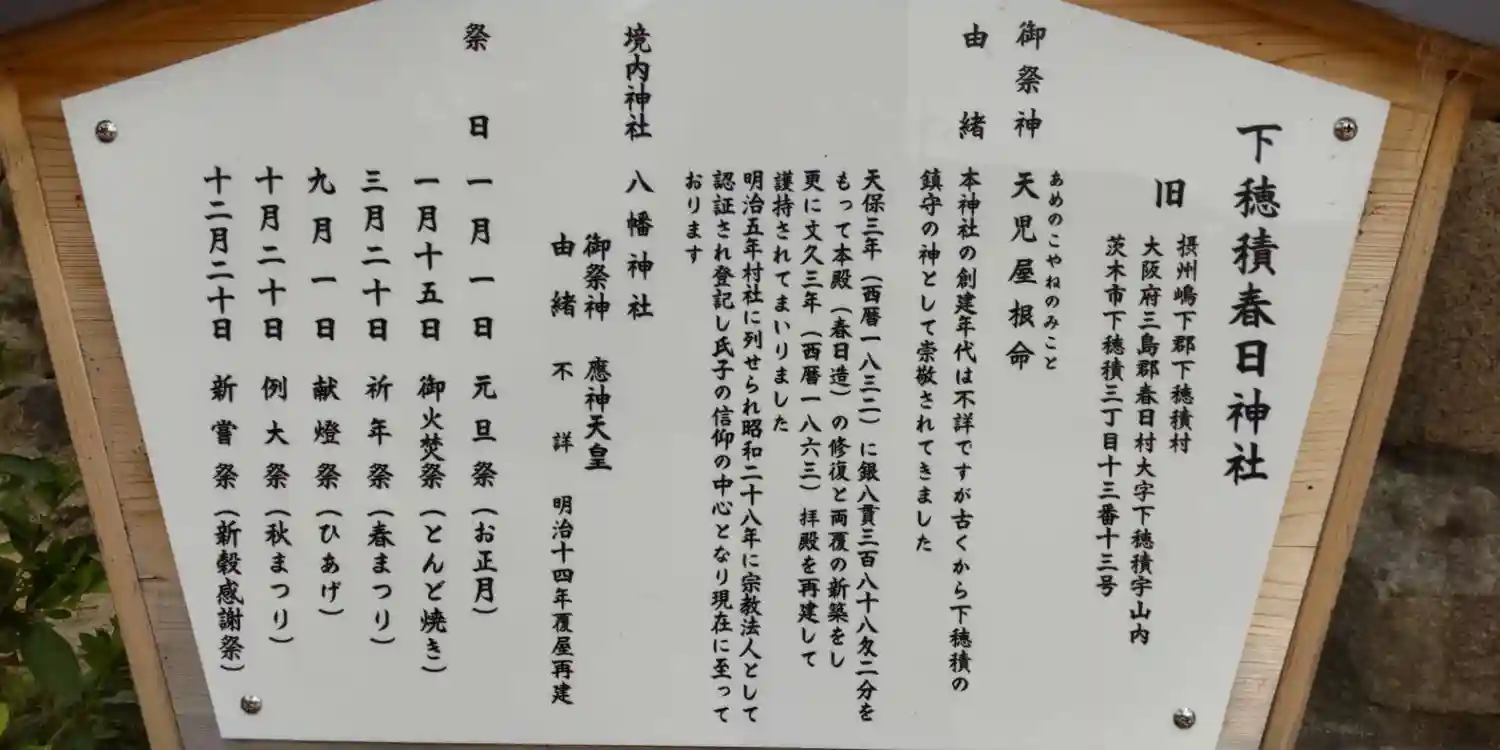 下穂積春日神社
旧 摂州嶋下郡下穂積村
大阪府三島郡春日村大字下穂積字山内
茨木市下穂積三丁目十三番十三号
あめのこやねのみこと
御祭神 天児屋根命
由緒 本神社の創建年代は不詳ですが古くから下穂積の
鎮守の神として崇敬されてきました
天保三年（西暦一八三二）に銀八貫三百八十八匁二分を
もって本殿（春日造）の修復と両覆の新築をし
更に文久三年（西暦一八六三）拝殿を再建して
護持されてまいりました
明治五年村社に列せられ昭和二十八年に宗教法人として
認証され登記し氏子の信仰の中心となり現在に至って
おります
境内神社 八幡神社
御祭神 應神天皇
由緒 不詳 明治十四年覆屋再建
祭日 一月一日 元旦祭（お正月）
一月十五日 御火焚祭（とんど焼き）
三月二十日 祈年祭（春まつり）
九月一日 献燈祭（ひあげ）
十月二十日 例大祭（秋まつり）
十二月二十日 新嘗祭（新穀感謝祭）